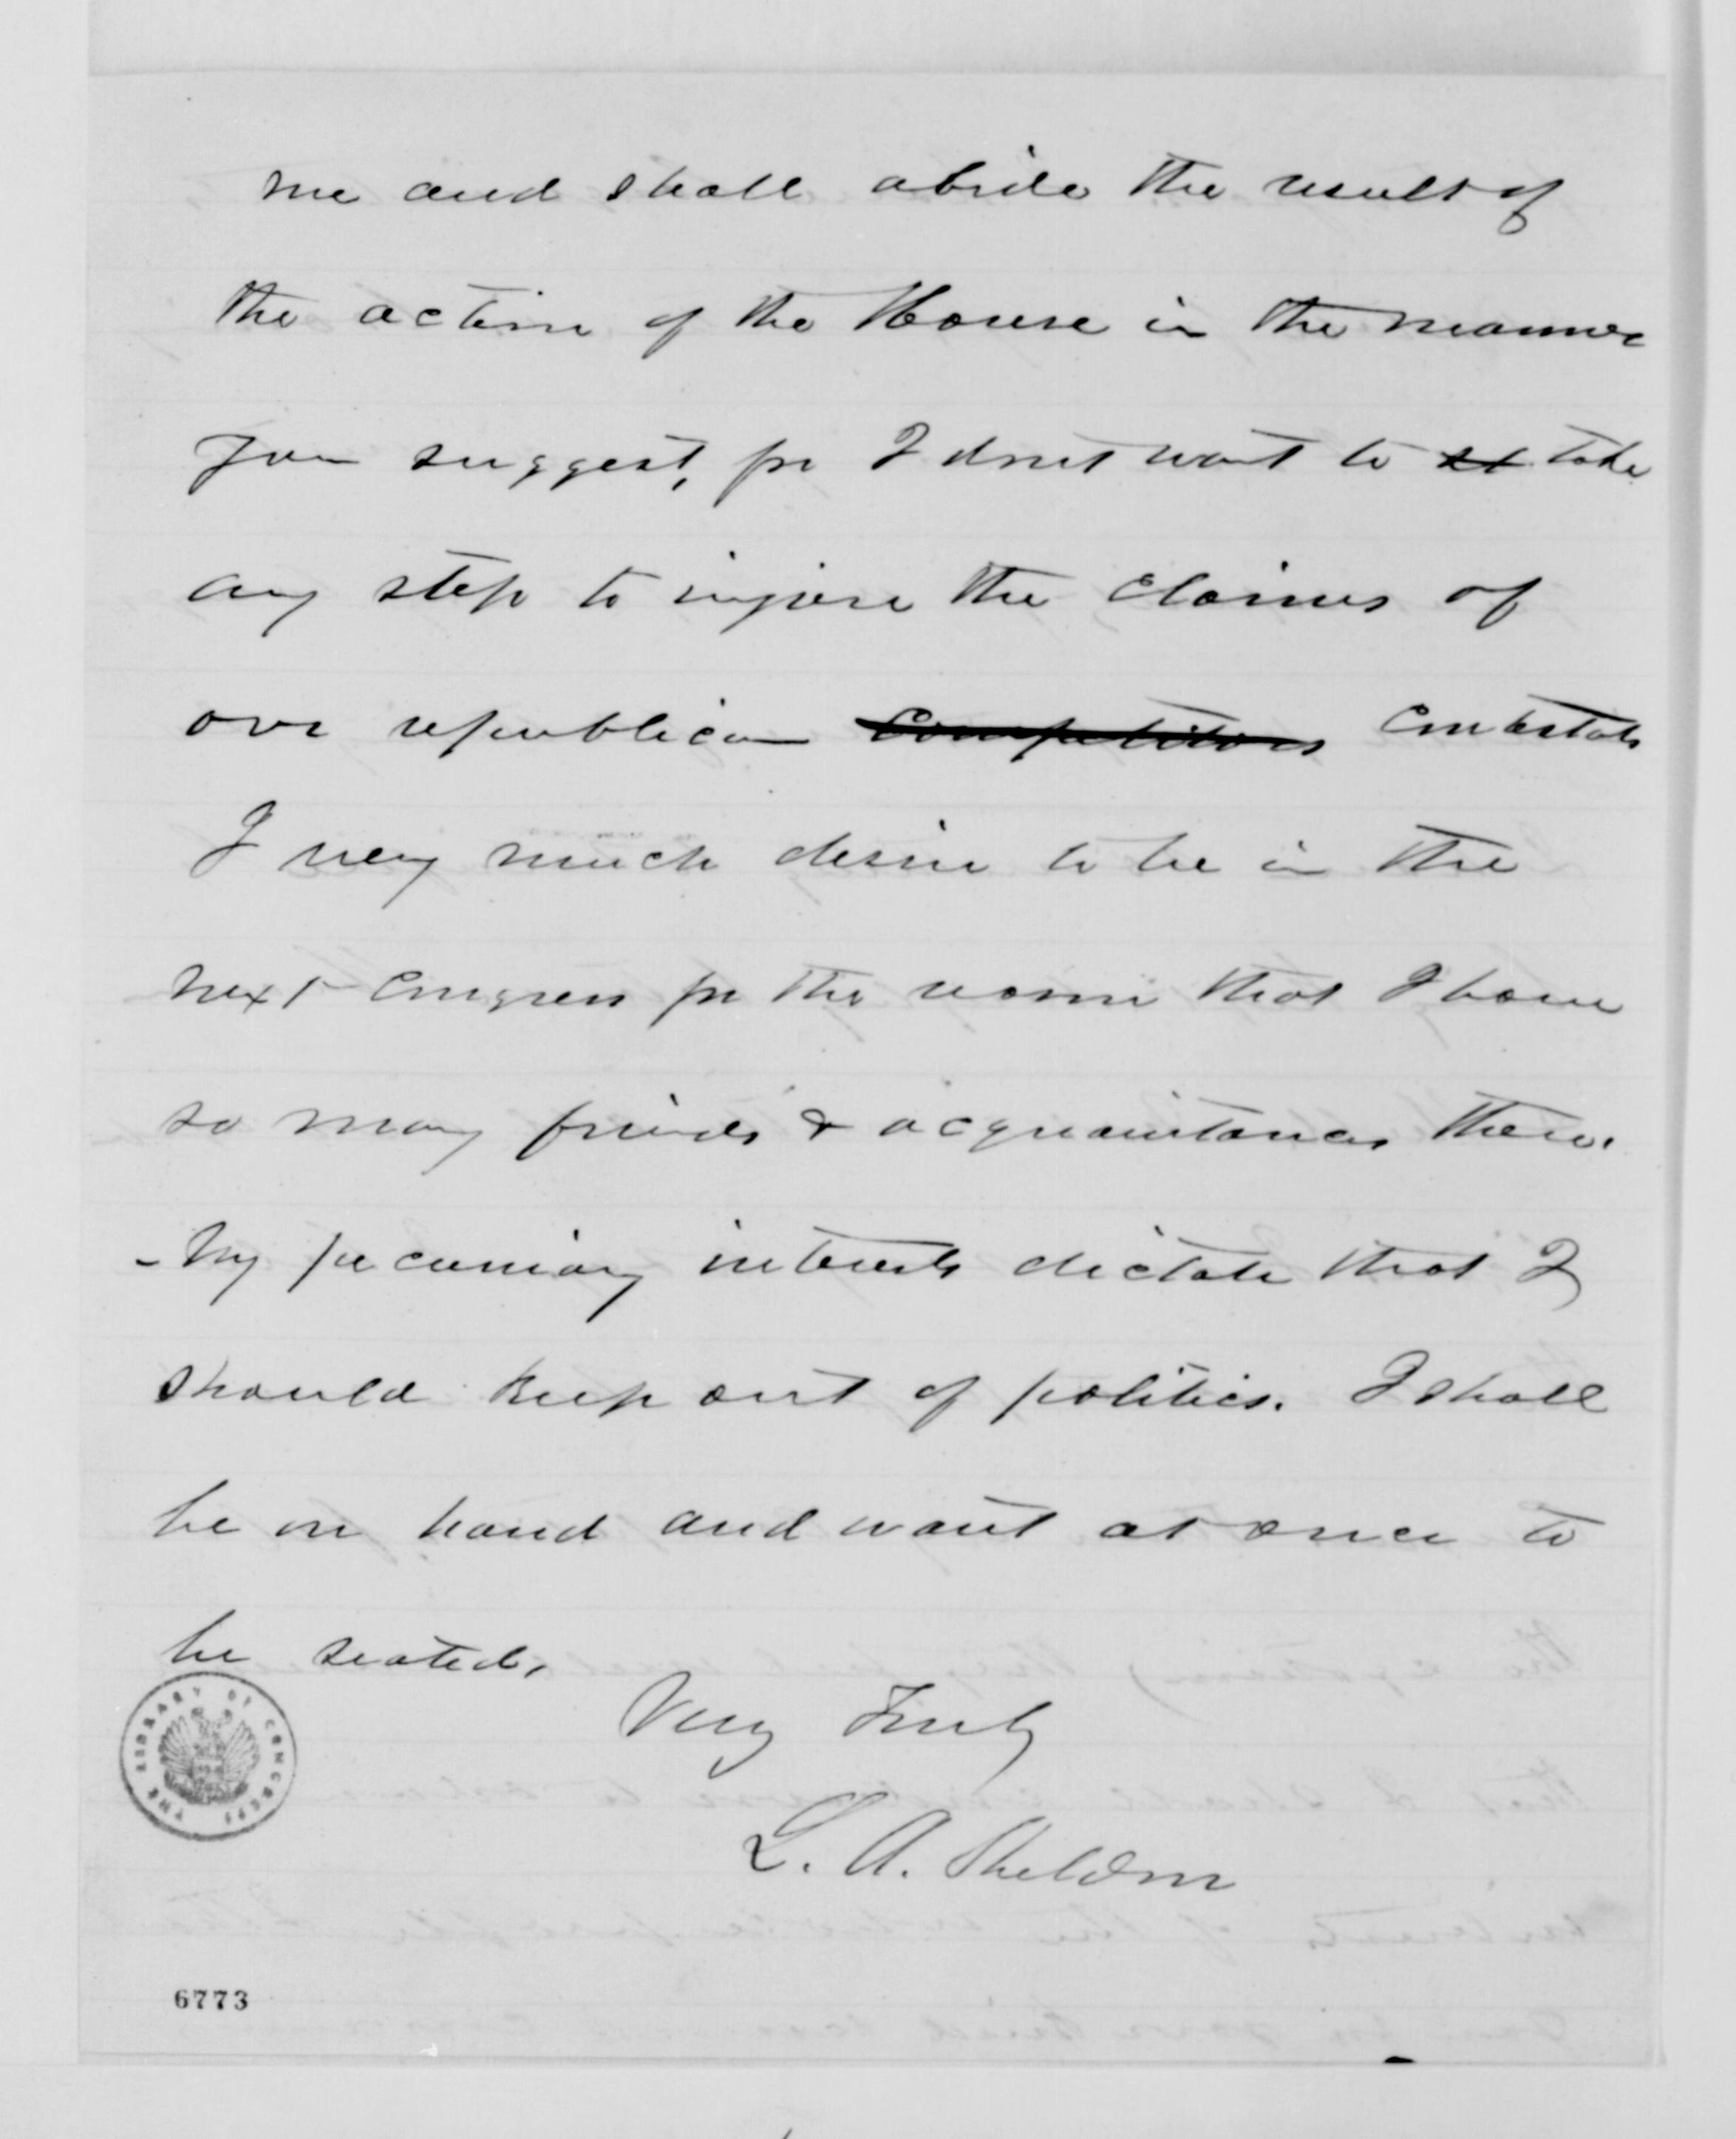 me and shall abide the result of
the action of the House in the manner
you suggest, for I dont want to st take
any step to injure the claims of
our republican competitors contestants
I very much desire to be in the
next Congress for the reason that I have
so many friends & acquaintances there.
- My pecuniary interests dictate that I
should keep out of politics. I shall
be on hand and want at once to
be seated.
Very Truly
L. A. Sheldon
THE LIBRARY OF CONGRESS
6773